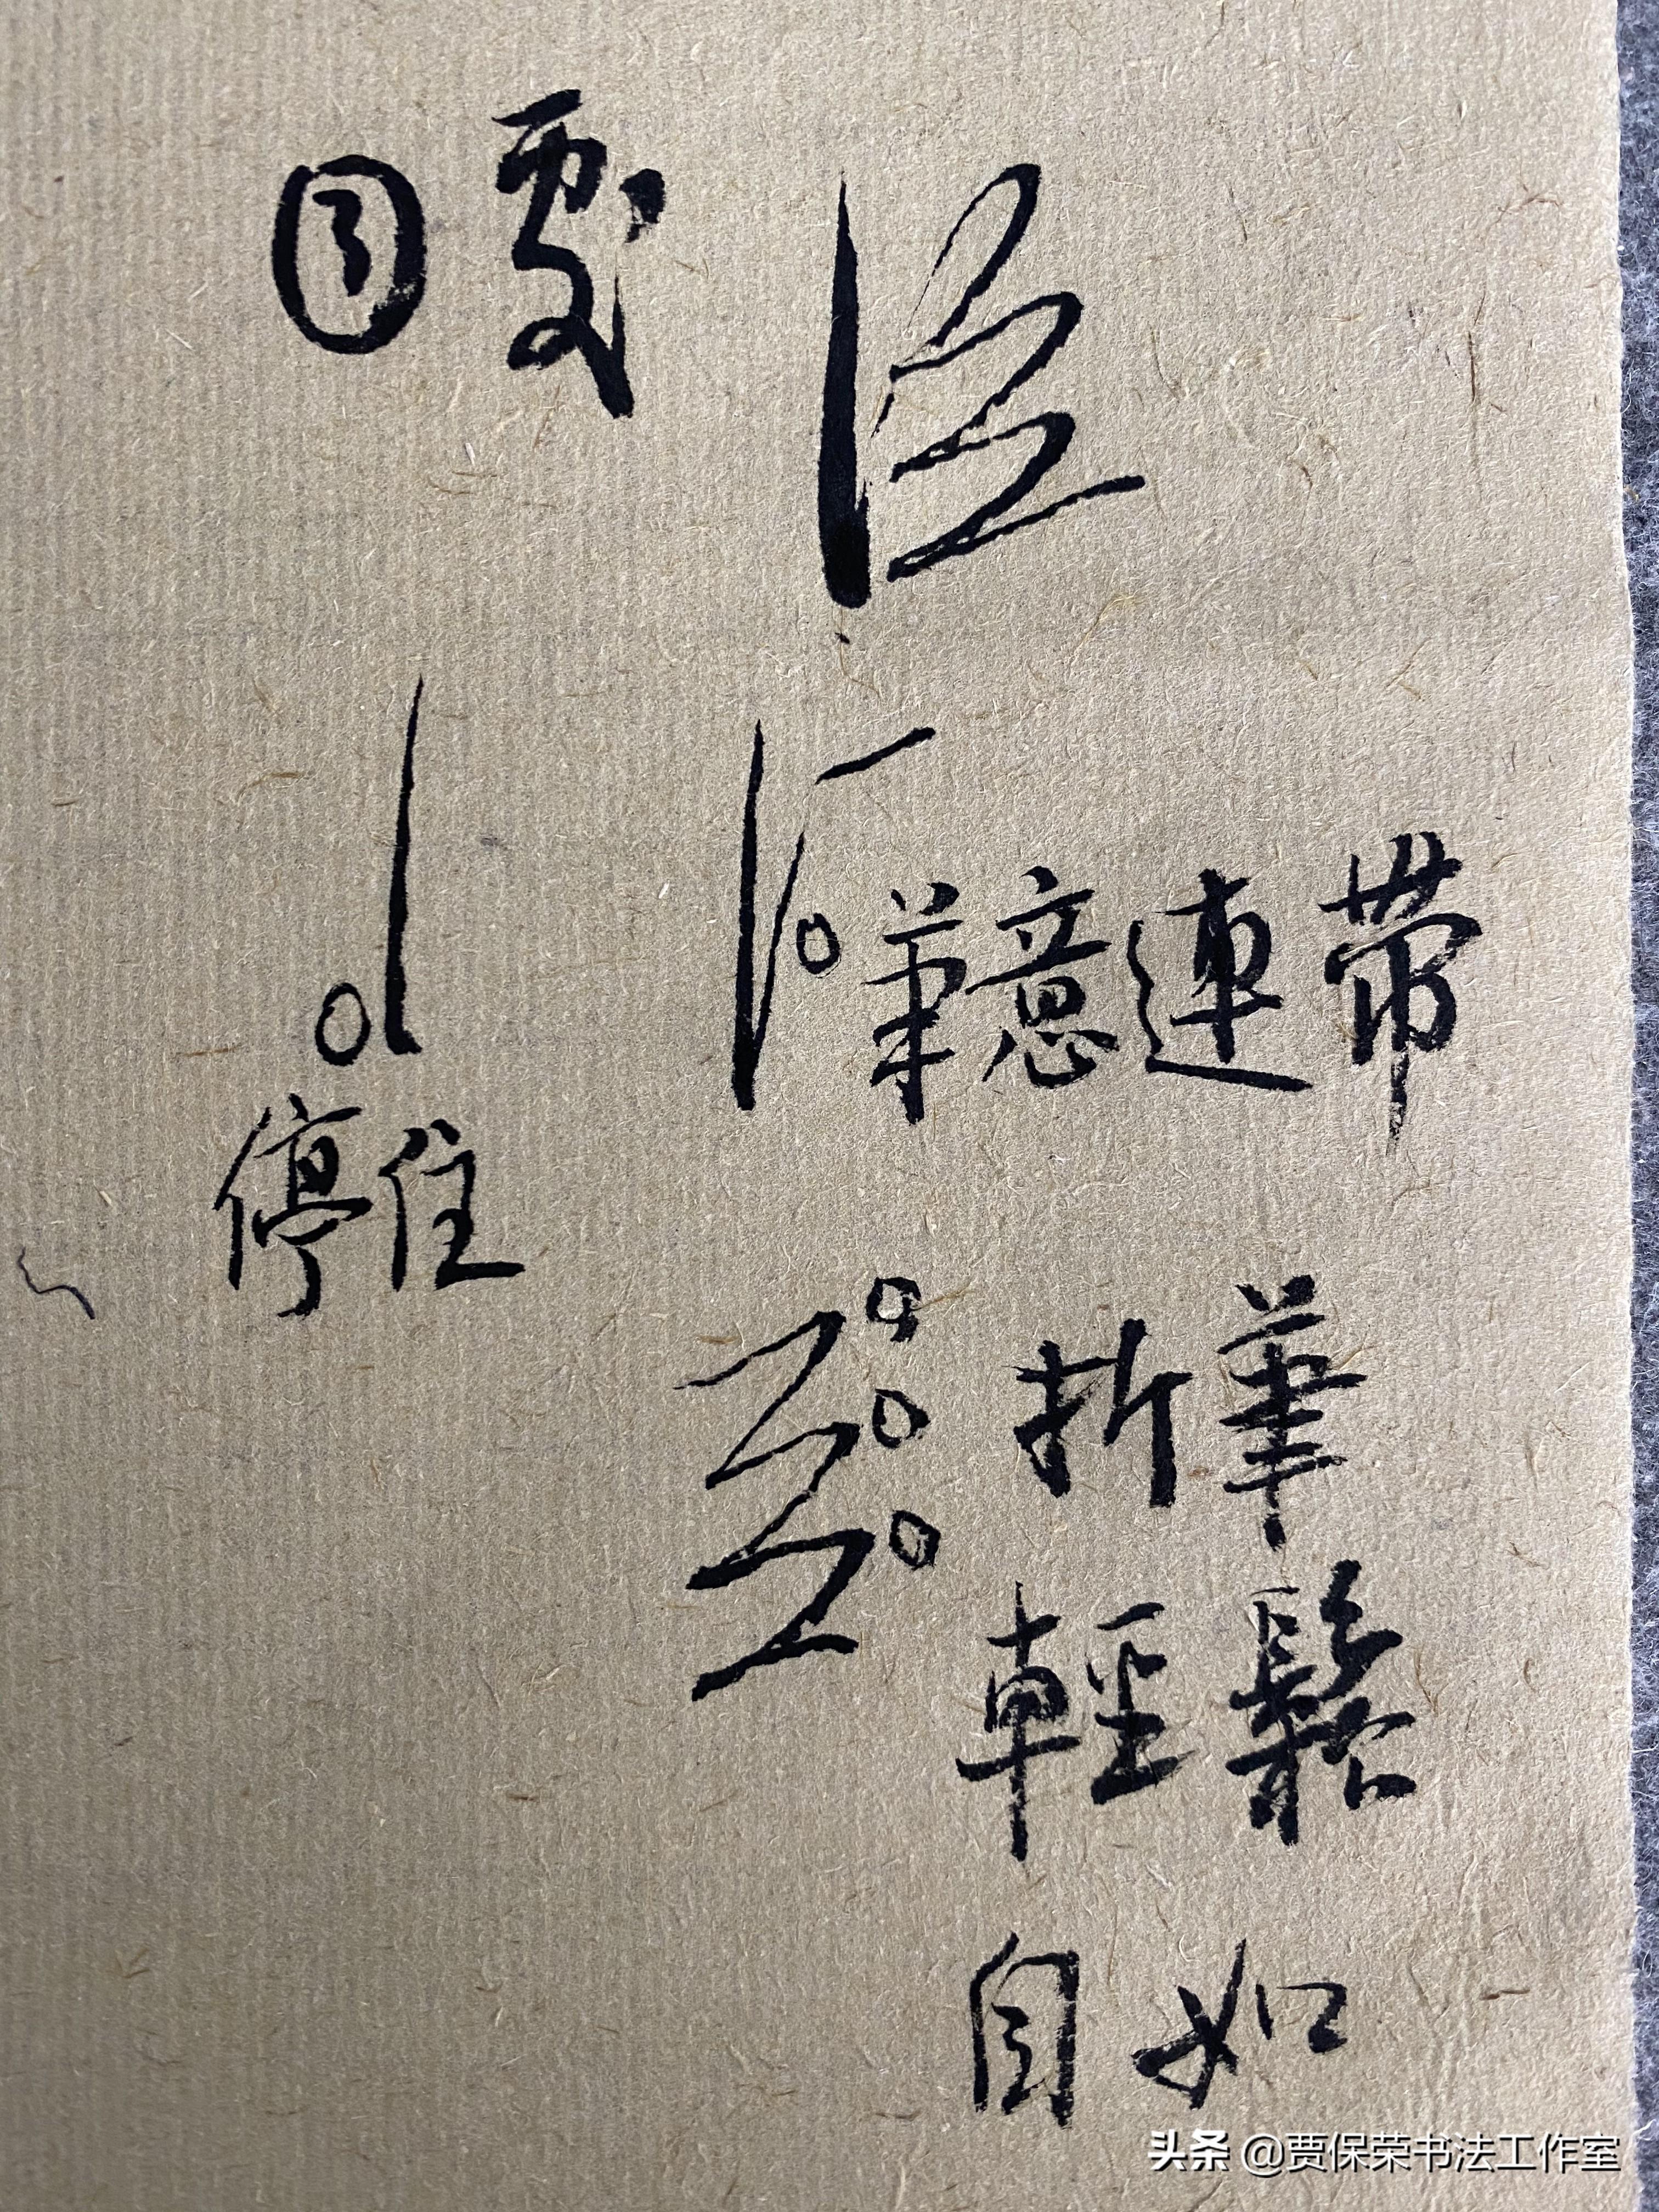 ③
停住
筆意連带
折筆
輕鬆
自如
头条 @贾保荣书法工作室